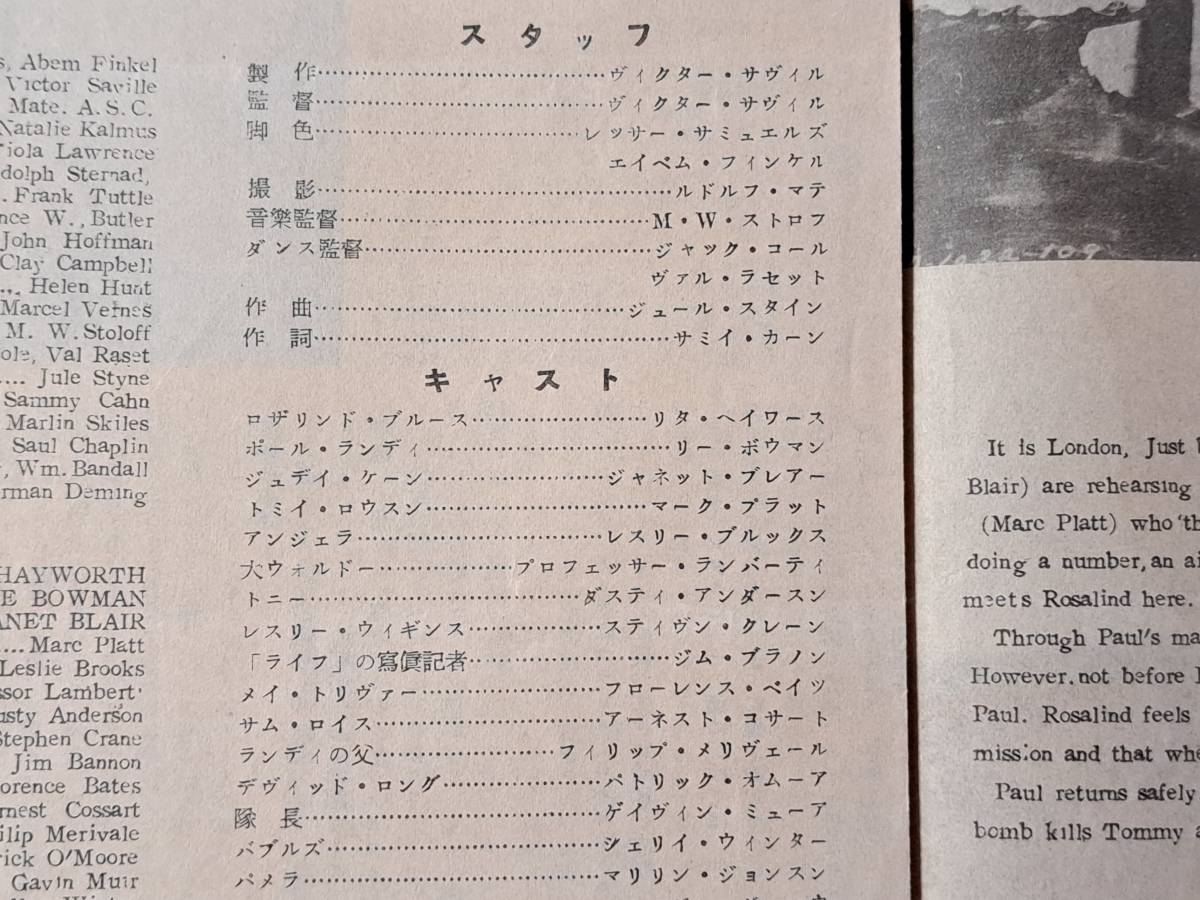 s, Abem Finkel
Victor Saville
Mate. A. S. C.
Natalie Kalmus
iola Lawrence
dolph Sternad,
. Frank Tuttle
nce W., Butler
John Hoffman
Clay Campbell
... Helen Hunt
Marcel Vernes
M. W. Stoloff
ole, Val Raset
.... Jule Styne
Sammy Cahn
Marlin Skiles
Saul Chaplin
, Wm. Bandall
rman Deming
HAYWORTH
E BOWMAN
ANET BLAIR
.... Marc Platt
Leslie Brooks
ssor Lambert
usty Anderson
Stephen Crane
Jim Bannon
orence Bates
rnest Cossart
ilip Merivale
rick O'Moore
Gavin Muir
スタッフ
製作……ヴィクター・サヴィル
監督……ヴィクター・サヴィル
脚色……レッサー・サミュエルズ
エイベム・フィンケル
撮影……ルドルフ・マテ
音樂監督……M・W・ストロフ
ダンス監督……ジャック・コール
ヴァル・ラセット
作曲……ジュール・スタイン
作詞……サミイ・カーン
キャスト
ロザリンド・ブルース……リタ・ヘイワース
ポール・ランディ……リー・ボウマン
ジュデイ・ケーン……ジャネット・ブレアー
トミイ・ロウスン……マーク・プラット
アンジェラ……レスリー・ブルックス
大ウォルドー……プロフェッサー・ランバーティ
トニー……ダスティ・アンダースン
レスリー・ウィギンス……スティヴン・クレーン
「ライフ」の寫眞記者……ジム・ブラノン
メイ・トリヴァー……フローレンス・ベイツ
サム・ロイス……アーネスト・コサート
ランディの父……フィリップ・メリヴェール
デヴィッド・ロング……パトリック・オムーア
隊長……ゲイヴィン・ミューア
バブルズ……シェリイ・ウィンター
パメラ……マリリン・ジョンスン
It is London, Just b
Blair) are rehearsing
(Marc Platt) who 'th
doing a number, an ai
meets Rosalind here.
Through Paul's ma
However. not before
Paul. Rosalind feels
mission and that whe
Paul returns safely
bomb kills Tommy a